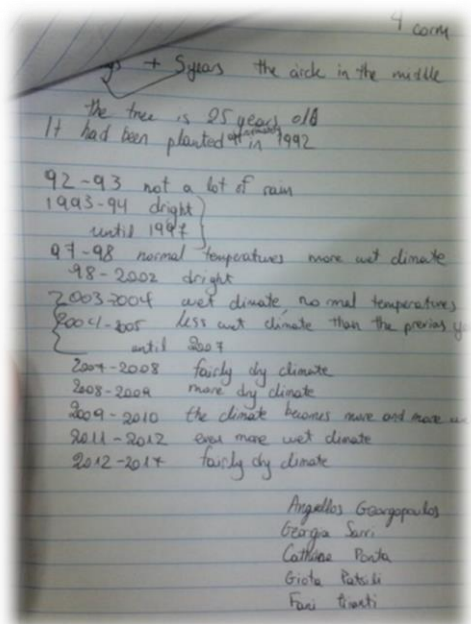 4 
+ 5 years the circle in the middle
the tree is 25 years old
It had been planted in 1992
92-93 not a lot of rain
1993-94 dright
until 1997
97-98 normal temperatures more wet climate
98-2002 dright
2003-2004 wet climate, normal temperatures
2004-2005 less wet climate than the previus
until 2007
2007-2008 fairly dry climate
2008-2009 more dry climate
2009-2010 the climate becomes more and more
2011-2012 even more wet climate
2012-2017 fairly dry climate
Georgopoulos
Georgia Sarri
Ponta
Giota